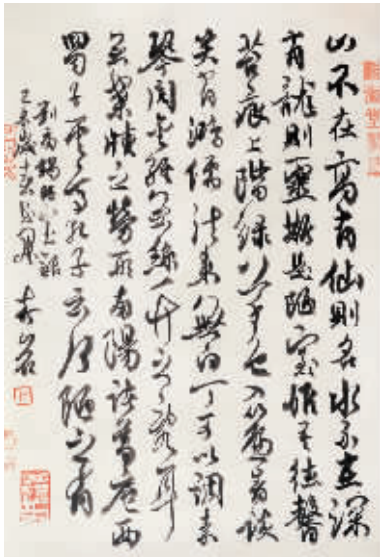 山不在高有仙則名水不在深
有龍則靈斯是陋室惟吾德馨
苔痕上階綠草色入簾青談
笑有鴻儒往來無白丁可以調素
琴閱金經無絲竹之亂耳
無案牘之勞形南陽諸葛廬西
蜀子雲亭孔子云何陋之有
劉禹錫陋室銘